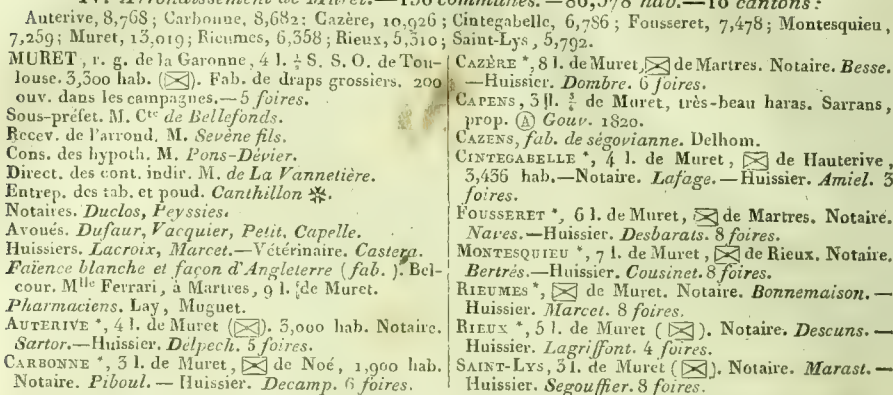 IV. Arrondissement de Muret.—130 communes.—80,578 hab.—10 cantons:
Auterive, 8,768; Carbonne, 8,682; Cazère, 10,926; Cintegabelle, 6,786; Fousseret, 7,478; Montesquieu,
7,259; Muret, 13,019; Rieumes, 6,358; Rieux, 5,510; Saint-Lys, 5,792.
MURET, r. g. de la Garonne, 4 l. ½ S. S. O. de Tou-
louse. 3,300 hab. (✉). Fab. de draps grossiers. 200
ouv. dans les campagnes.—5 foires.
Sous-préfet. M. Cte de Bellefonds.
Recev. de l'arrond. M. Sevène fils.
Cons. des hypoth. M. Pons-Dévier.
Direct. des cont. indir. M. de La Vannetière.
Entrep. des tab. et poud. Canthillon ✻.
Notaires. Duclos, Peyssies.
Avoués. Dufaur, Vacquier, Petit, Capelle.
Huissiers. Lacroix, Marcet.—Vétérinaire. Castera.
Faïence blanche et façon d'Angleterre (fab.). Bel-
cour. Mlle Ferrari, à Martres, 9 l. de Muret.
Pharmaciens. Lay, Muguet.
AUTERIVE *, 4 l. de Muret (✉). 3,000 hab. Notaire.
Sartor.—Huissier. Delpech. 5 foires.
CARBONNE *, 3 l. de Muret, ✉ de Noé, 1,900 hab.
Notaire. Piboul. — Huissier. Decamp. 6 foires.
CAZÈRE *, 8 l. de Muret, ✉ de Martres. Notaire. Besse.
—Huissier. Dombre. 6 foires.
CAPENS, 3 l. ¾ de Muret, très-beau haras. Sarrans,
prop. Ⓐ Gouv. 1820.
CAZENS, fab. de ségovianne. Delhom.
CINTEGABELLE *, 4 l. de Muret, ✉ de Hauterive,
3,436 hab.—Notaire. Lafage.—Huissier. Amiel. 3
foires.
FOUSSERET *, 6 l. de Muret, ✉ de Martres. Notaire.
Naves.—Huissier. Desbarats. 8 foires.
MONTESQUIEU *, 7 l. de Muret, ✉ de Rieux. Notaire.
Bertrés.—Huissier. Cousinet. 8 foires.
RIEUMES *, ✉ de Muret. Notaire. Bonnemaison.—
Huissier. Marcet. 8 foires.
RIEUX *, 5 l. de Muret (✉). Notaire. Descuns.—
Huissier. Lagriffont. 4 foires.
SAINT-LYS, 3 l. de Muret (✉). Notaire. Marast.—
Huissier. Segouffier. 8 foires.